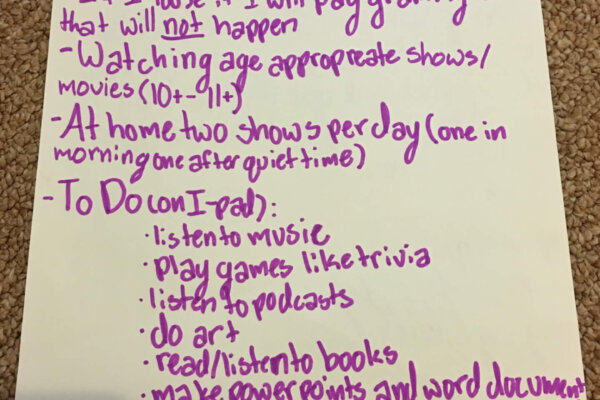 I will pay
that will not happen
-Watching age appropreate shows/
movies (10+-11+)
-At home two shows per day (one in
morning one after quiet time)
-To Do (on I-pad):
•listen to music
•play games like trivia
•listen to podcasts
•do art
•read/listen to books
•make powerpoints and word document